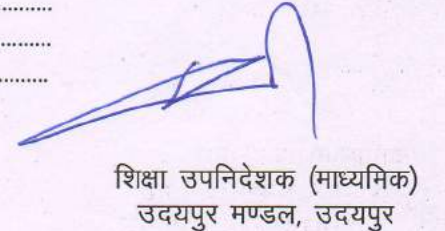 ..............
..............
............
शिक्षा उपनिदेशक (माध्यमिक)
उदयपुर मण्डल, उदयपुर